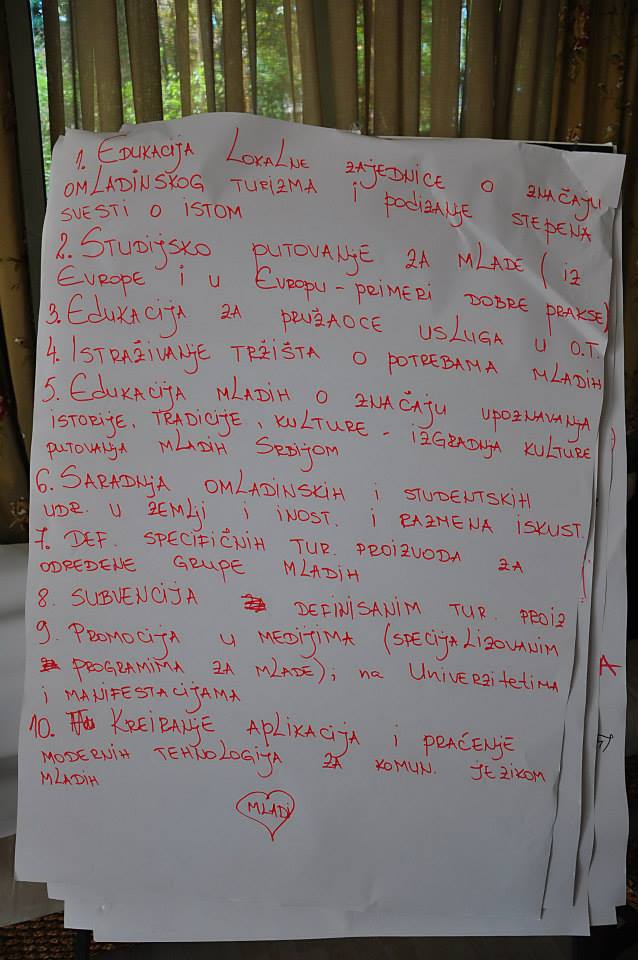 1. EDUKACIJA LOKALNE ZAJEDNICE O ZNAČAJU
OMLADINSKOG TURIZMA I PODIZANJE STEPENA
SVESTI O ISTOM
2. STUDIJSKO PUTOVANJE ZA MLADE (IZ
EVROPE I U EVROPU - PRIMERI DOBRE PRAKSE)
3. EDUKACIJA ZA PRUŽAOCE USLUGA U O.T.
4. ISTRAŽIVANJE TRŽIŠTA O POTREBAMA MLADIH
5. EDUKACIJA MLADIH O ZNAČAJU UPOZNAVANJA
ISTORIJE, TRADICIJE, KULTURE - IZGRADNJA KULTURE
PUTOVANJA MLADIH SRBIJOM
6. SARADNJA OMLADINSKIH I STUDENTSKIH
UDR. U ZEMLJI I INOST. I RAZMENA ISKUST.
7. DEF. SPECIFIČNIH TUR. PROIZVODA ZA
ODREĐENE GRUPE MLADIH
8. SUBVENCIJA DEFINISANIM TUR. PROIZ
9. PROMOCIJA U MEDIJIMA (SPECIJALIZOVANIM
PROGRAMIMA ZA MLADE); na Univerzitetima
I MANIFESTACIJAMA
10. KREIRANJE APLIKACIJA I PRAĆENJE
MODERNIH TEHNOLOGIJA ZA KOMUN. JEZIKOM
MLADIH
MLADI